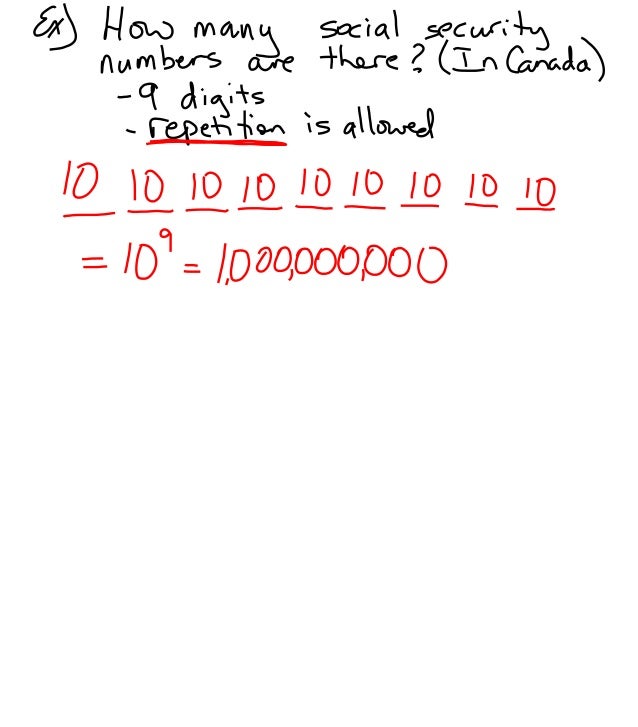 Ex) How many social security
numbers are there? (In Canada)
- 9 digits
- repetition is allowed
10 10 10 10 10 10 10 10 10
= 10⁹ = 1,000,000,000